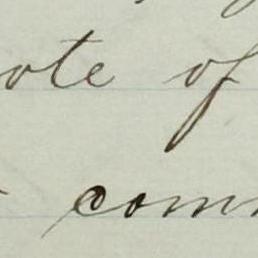 ote of
com